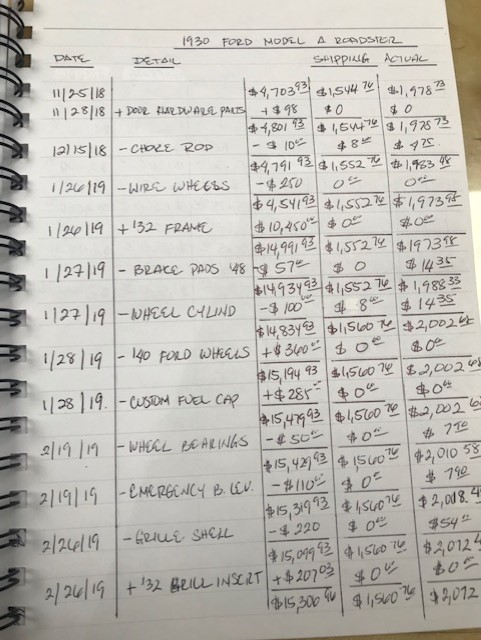 1930 FORD MODEL A ROADSTER
DATE DETAIL SHIPPING ACTUAL
11/25/18 $4,703 93 $1,544 76 $1,978 73
11/28/18 + DOOR HARDWARE PARTS + $98 $0 $0
$4,801 93 $1,544 76 $1,978 73
12/15/18 - CHOKE ROD - $10 00 $8 00 $4 75
$4,791 93 $1,552 76 $1,983 48
1/26/19 - WIRE WHEELS - $250 0 00 0 00
$4,541 93 $1,552 76 $1,973 98
1/26/19 + '32 FRAME $10,450 00 $0 00 $0 00
$14,991 93 $1,552 76 $1973 98
1/27/19 - BRAKE PADS '48 - $57 00 $0 $14 35
$14,934 93 $1,552 76 $1,988 33
1/27/19 - WHEEL CYLIND - $100 00 $8 00 $14 35
$14,834 93 $1,560 76 $2,002 68
1/28/19 - '40 FORD WHEELS + $360 00 $0 00 $0 00
$15,194 93 $1,560 76 $2,002 68
1/28/19. - CUSTOM FUEL CAP + $285 00 $0 00 $0 00
$15,479 93 $1,560 76 $2,002 6
2/19/19 - WHEEL BEARINGS - $50 00 $0 00 $7 90
$15,429 93 $1560 76 $2,010 58
2/19/19 - EMERGENCY B. LEV. - $110 00 $0 00 $7 90
$15,319 93 $1,560 76 $2,018.4
2/26/19 - GRILLE SHELL - $220 $0 00 $54 00
$15,099 93 $1,560 76 $2,072 4
2/26/19 + '32 GRILL INSERT + $207 03 $0 00 $0 00
$15,306 96 $1,560 76 $2,072